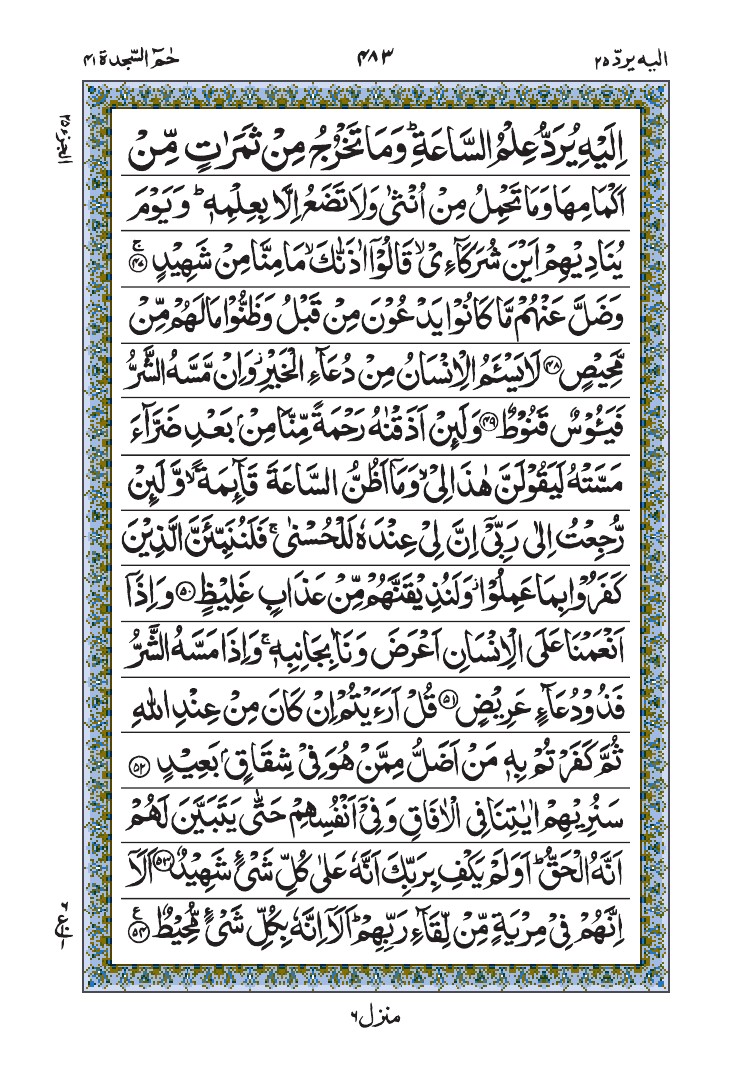 الیہ یردّ ۲۵
۴۸۳
حٰمٓ السّجدۃ ۴۱
الجزء ۲۵
اِلَيْهِ يُرَدُّ عِلْمُ السَّاعَةِ ؕ وَمَا تَخْرُجُ مِنْ ثَمَرٰتٍ مِّنْ
اَكْمَامِهَا وَمَا تَحْمِلُ مِنْ اُنْثٰى وَلَا تَضَعُ اِلَّا بِعِلْمِهٖ ؕ وَيَوْمَ
يُنَادِيْهِمْ اَيْنَ شُرَكَآءِىْ ۙ قَالُوْٓا اٰذَنّٰكَ ۙ مَا مِنَّا مِنْ شَهِيْدٍ ۚ ﴿۴۷﴾
وَضَلَّ عَنْهُمْ مَّا كَانُوْا يَدْعُوْنَ مِنْ قَبْلُ وَظَنُّوْا مَا لَهُمْ مِّنْ
مَّحِيْصٍ ﴿۴۸﴾ لَا يَسْـَٔمُ الْاِنْسَانُ مِنْ دُعَآءِ الْخَيْرِ ؗ وَاِنْ مَّسَّهُ الشَّرُّ
فَيَـُٔوْسٌ قَنُوْطٌ ﴿۴۹﴾ وَلَىِٕنْ اَذَقْنٰهُ رَحْمَةً مِّنَّا مِنْۢ بَعْدِ ضَرَّآءَ
مَسَّتْهُ لَيَقُوْلَنَّ هٰذَا لِىْ ۙ وَمَآ اَظُنُّ السَّاعَةَ قَآىِٕمَةً ۙ وَّلَىِٕنْ
رُّجِعْتُ اِلٰى رَبِّىْٓ اِنَّ لِىْ عِنْدَهٗ لَلْحُسْنٰى ۚ فَلَنُنَبِّئَنَّ الَّذِيْنَ
كَفَرُوْا بِمَا عَمِلُوْا ؗ وَلَنُذِيْقَنَّهُمْ مِّنْ عَذَابٍ غَلِيْظٍ ﴿۵۰﴾ وَاِذَآ
اَنْعَمْنَا عَلَى الْاِنْسَانِ اَعْرَضَ وَنَاٰ بِجَانِبِهٖ ۚ وَاِذَا مَسَّهُ الشَّرُّ
فَذُوْ دُعَآءٍ عَرِيْضٍ ﴿۵۱﴾ قُلْ اَرَءَيْتُمْ اِنْ كَانَ مِنْ عِنْدِ اللّٰهِ
ثُمَّ كَفَرْتُمْ بِهٖ مَنْ اَضَلُّ مِمَّنْ هُوَ فِىْ شِقَاقٍۢ بَعِيْدٍ ﴿۵۲﴾
سَنُرِيْهِمْ اٰيٰتِنَا فِى الْاٰفَاقِ وَفِىْٓ اَنْفُسِهِمْ حَتّٰى يَتَبَيَّنَ لَهُمْ
اَنَّهُ الْحَقُّ ؕ اَوَلَمْ يَكْفِ بِرَبِّكَ اَنَّهٗ عَلٰى كُلِّ شَىْءٍ شَهِيْدٌ ﴿۵۳﴾ اَلَآ
اِنَّهُمْ فِىْ مِرْيَةٍ مِّنْ لِّقَآءِ رَبِّهِمْ ؕ اَلَآ اِنَّهٗ بِكُلِّ شَىْءٍ مُّحِيْطٌ ﴿۵۴﴾ ع
منزل ۶